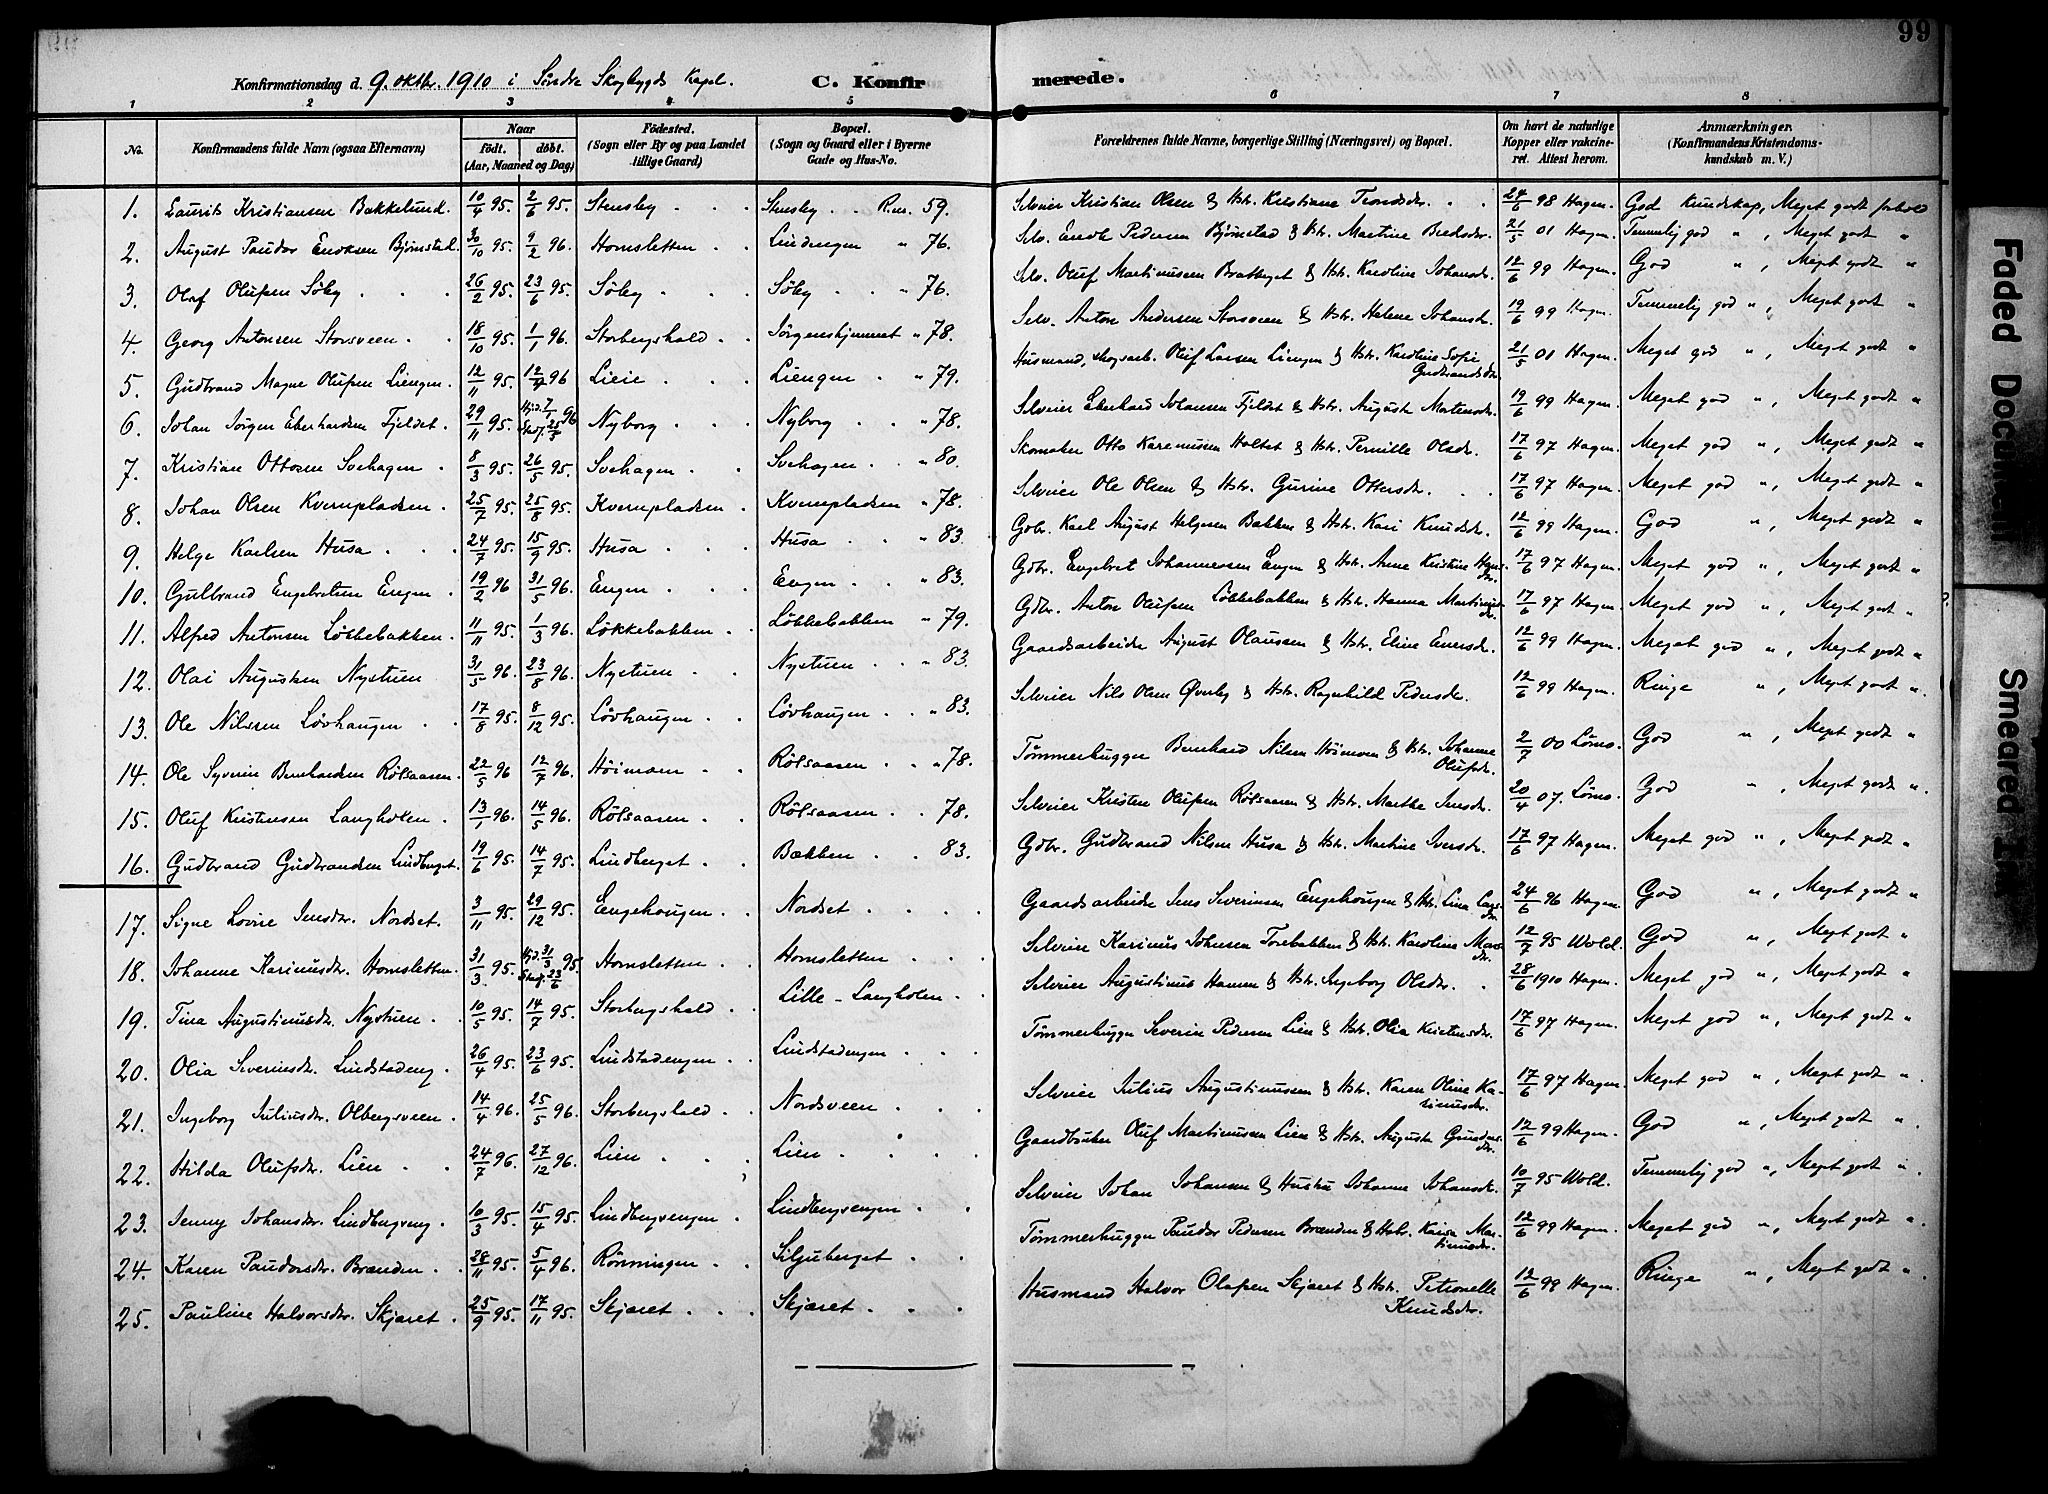 99
Konfirmationsdag d. 9. oktbr. 1910 i Søndre Skogbygds Kapel. C. Konfirmerede.
1 2 3 4 5 6 7 8
No. Konfirmandens fulde Navn (ogsaa Efternavn) Naar födt. döbt. (Aar, Maaned og Dag) Födested. (Sogn eller By og paa Landet tillige Gaard) Bopæl. (Sogn og Gaard eller i Byerne Gade og Hus-No. Forældrenes fulde Navne, borgerlige Stilling (Næringsvei) og Bopæl. Om havt de naturlige Kopper eller vakcineret. Attest herom. Anmærkninger. (Konfirmandens Kristendomskundskab m. V.)
1. Laurits Kristiansen Bakkelund. 10/4 95. 2/6 95. Stensby Stensby R.nr. 59. Selveier Kristian Olsen & Hstr. Kristiane Trondsdr. 24/6 98 Hagen. God Kundskap, Meget godt forhold
2. August Paudor Eriksen Bjørnstad. 30/10 95. 9/2 96. Hornsletten Lindengen " 76. Selv. Pedersen Bjørnstad & Hstr. Martine 21/5 01 Hagen. Temmelig god " , Meget godt "
3. Olaf Olufsen Søby 26/2 95. 23/6 95. Søby Søby " 76. Selv. Oluf Martinusen Brattegst & Hstr. Karoline Johansdr. 12/6 99 Hagen. God " , Meget godt "
4. Georg Antonsen Storsveen 18/10 95. 1/1 96. Storbergshold Jørgenshjemmet " 78. Selv. Anton Andersen Storsveen & Hstr. Helene Johansdr. 19/6 99 Hagen. Temmelig god " , Meget godt "
5. Gudbrand Magne Olufsen Liengen. 12/11 95. 12/4 96 Lieie Liengen " 79. Husmand, skogsarb. Oluf Larsen Liengen & Hstr. Karoline Sofie Gudbrandsdr. 21/5 01 Hagen. Meget god " , Meget godt "
6. Johan Jörgen Eberhardsen Fjeldet. 29/11 95. Hjd. 7/1 Stadf. 25/3 96 Nyborg Nyborg " 78. Selveier Eberhard Johansen Fjeldet & Hstr. Auguste Martensdr. 19/6 99 Hagen. Meget god " , Meget godt "
7. Kristian Ottosen Svehagen 8/3 95. 26/5 95. Svehagen Svehagen " 80. Skomaker Otto Karenusen Holtet & Hstr. Pernille Olsdr. 17/6 97 Hagen. Meget god " , Meget godt "
8. Johan Olsen Kvernpladsen 25/7 95. 25/8 95. Kvernpladsen Kvernpladsen " 78. Selveier Ole Olsen & Hstr. Gurine Ottersdr. 17/6 97 Hagen. Meget god " , Meget godt "
9. Helge Karlsen Husa 24/7 95. 15/9 95. Husa Husa " 83. Gbr. Karl August Helgesen Bakken & Hstr. Kari Knudsdr. 12/6 99 Hagen. God " , Meget godt "
10. Gulbrand Engebretsen Engen 19/2 96 31/5 96. Engen Engen " 83. Gdbr. Engebret Johannesen Engen & Hstr. Anne Kristine 17/6 97 Hagen. Meget god " , Meget godt "
11. Alfred Antonsen Løkkebakken. 11/11 95. 1/3 96. Løkkebakken Løkkebakken " 79. Gdbr. Anton Olufsen Løkkebakken & Hstr. Hanna Martinusdr. 17/6 97 Hagen. Meget god " , Meget godt "
12. Olai Augustsen Nystuen 31/5 96. 23/8 96. Nystuen Nystuen " 83. Gaardsarbeider August Olaussen & Hstr. Eline Enersdr. 12/6 99 Hagen. Meget god " , Meget godt "
13. Ole Nilssen Lövhaugen 17/8 95. 8/12 95. Lövhaugen Lövhaugen " 83. Selveier Nils Olsen Øverby & Hstr. Ragnhild Pedersdr. 12/6 99 Hagen. Ringe " , Meget godt "
14. Ole Syverin Bernhardsen Rölsaasen. 22/5 96 12/7 96. Höimoen Rölsaasen " 78. Tømmerhugger Bernhard Nilsen Höimoen & Hstr. Johanne Olufsdr. 2/7 00 Lömo. God " , Meget godt "
15. Oluf Kristensen Langholen. 13/1 96. 14/5 96. Rölsaasen Rölsaasen 78. Selveier Kristen Olufsen Rölsaasen & Hstr. Marthe Jensdr. 20/4 07. Lömo. God " , Meget godt "
16. Gudbrand Gudbrandsen Lindberget. 19/6 95. 14/7 95. Lindberget Bækken 83. Gdbr. Gudbrand Nilsen Husa & Hstr. Martine Iversdr. 17/6 97 Hagen. Meget god " , Meget godt "
17. Signe Lovise Jensdr. Nordset. 3/11 95. 29/12 95. Engehougen Nordset Gaardsarbeider Jens Severinsen Engehougen & Hstr. Lina Larsdr. 24/6 96 Hagen. God " , Meget godt "
18. Johanne Karinusdr. Hornsletten. 31/3 95. Hjd. 31/3 Stadf. 23/6 95. Hornsletten Hornsletten Selveier Karinus Johnsen Torebakken & Hstr. Karoline 12/7 95 Wold. God " , Meget godt "
19. Tina Augustinusdr. Nystuen 10/5 95. 14/7 95. Storbergshold Lille-Langholen Selveier Augustinus Hansen & Hstr. Ingeborg Olsdr. 28/6 1910 Hagen. Meget god " , Meget godt "
20. Olia Severinsdr. Lindstadeng. 26/4 95. 23/6 95. Lindstadengen Lindstadengen Tömmerhugger Severin Pedersen Lien & Hstr. Olia Kristensdr. 17/6 97 Hagen. Meget god " , Meget godt "
21. Ingeborg Juliusdr. Olbergsveen 14/4 96. 25/5 96. Storbergshold Nordsveen Selveier Julius Augustinussen & Hstr. Karen Oline Karinusdr. 17/6 97 Hagen. Meget god " , Meget godt "
22. Hilda Olufsdr. Lien 24/7 96. 27/12 96. Lien Lien Gaardbruker Oluf Martinussen Lien & Hstr. Augusta 12/6 99 Hagen. God " , Meget godt "
23. Jenny Johansdr. Lindbergseng. 10/3 95. 15/4 95. Lindbergsengen Lindbergsengen Selveier Johan Johansen & Hustru Johanne Johansdr. 10/7 95 Wold. Temmelig god " , Meget godt "
24. Karen Paudorsdr. Brænden 28/11 95. 5/4 96. Rönningen Siljuberget Tömmerhugger Paudor Pedersen Brænden & Hstr. Kaisa Martinusdr. 12/6 99 Hagen. Meget god " , Meget godt "
25. Pauline Halvorsdr. Skjæret 25/9 95. 17/11 95. Skjæret Skjæret Husmand Halvor Olafsen Skjæret & Hstr. Petronelle Knudsdr. 12/6 99 Hagen. Ringe " , Meget godt "
Faded Document
Smeared Ink